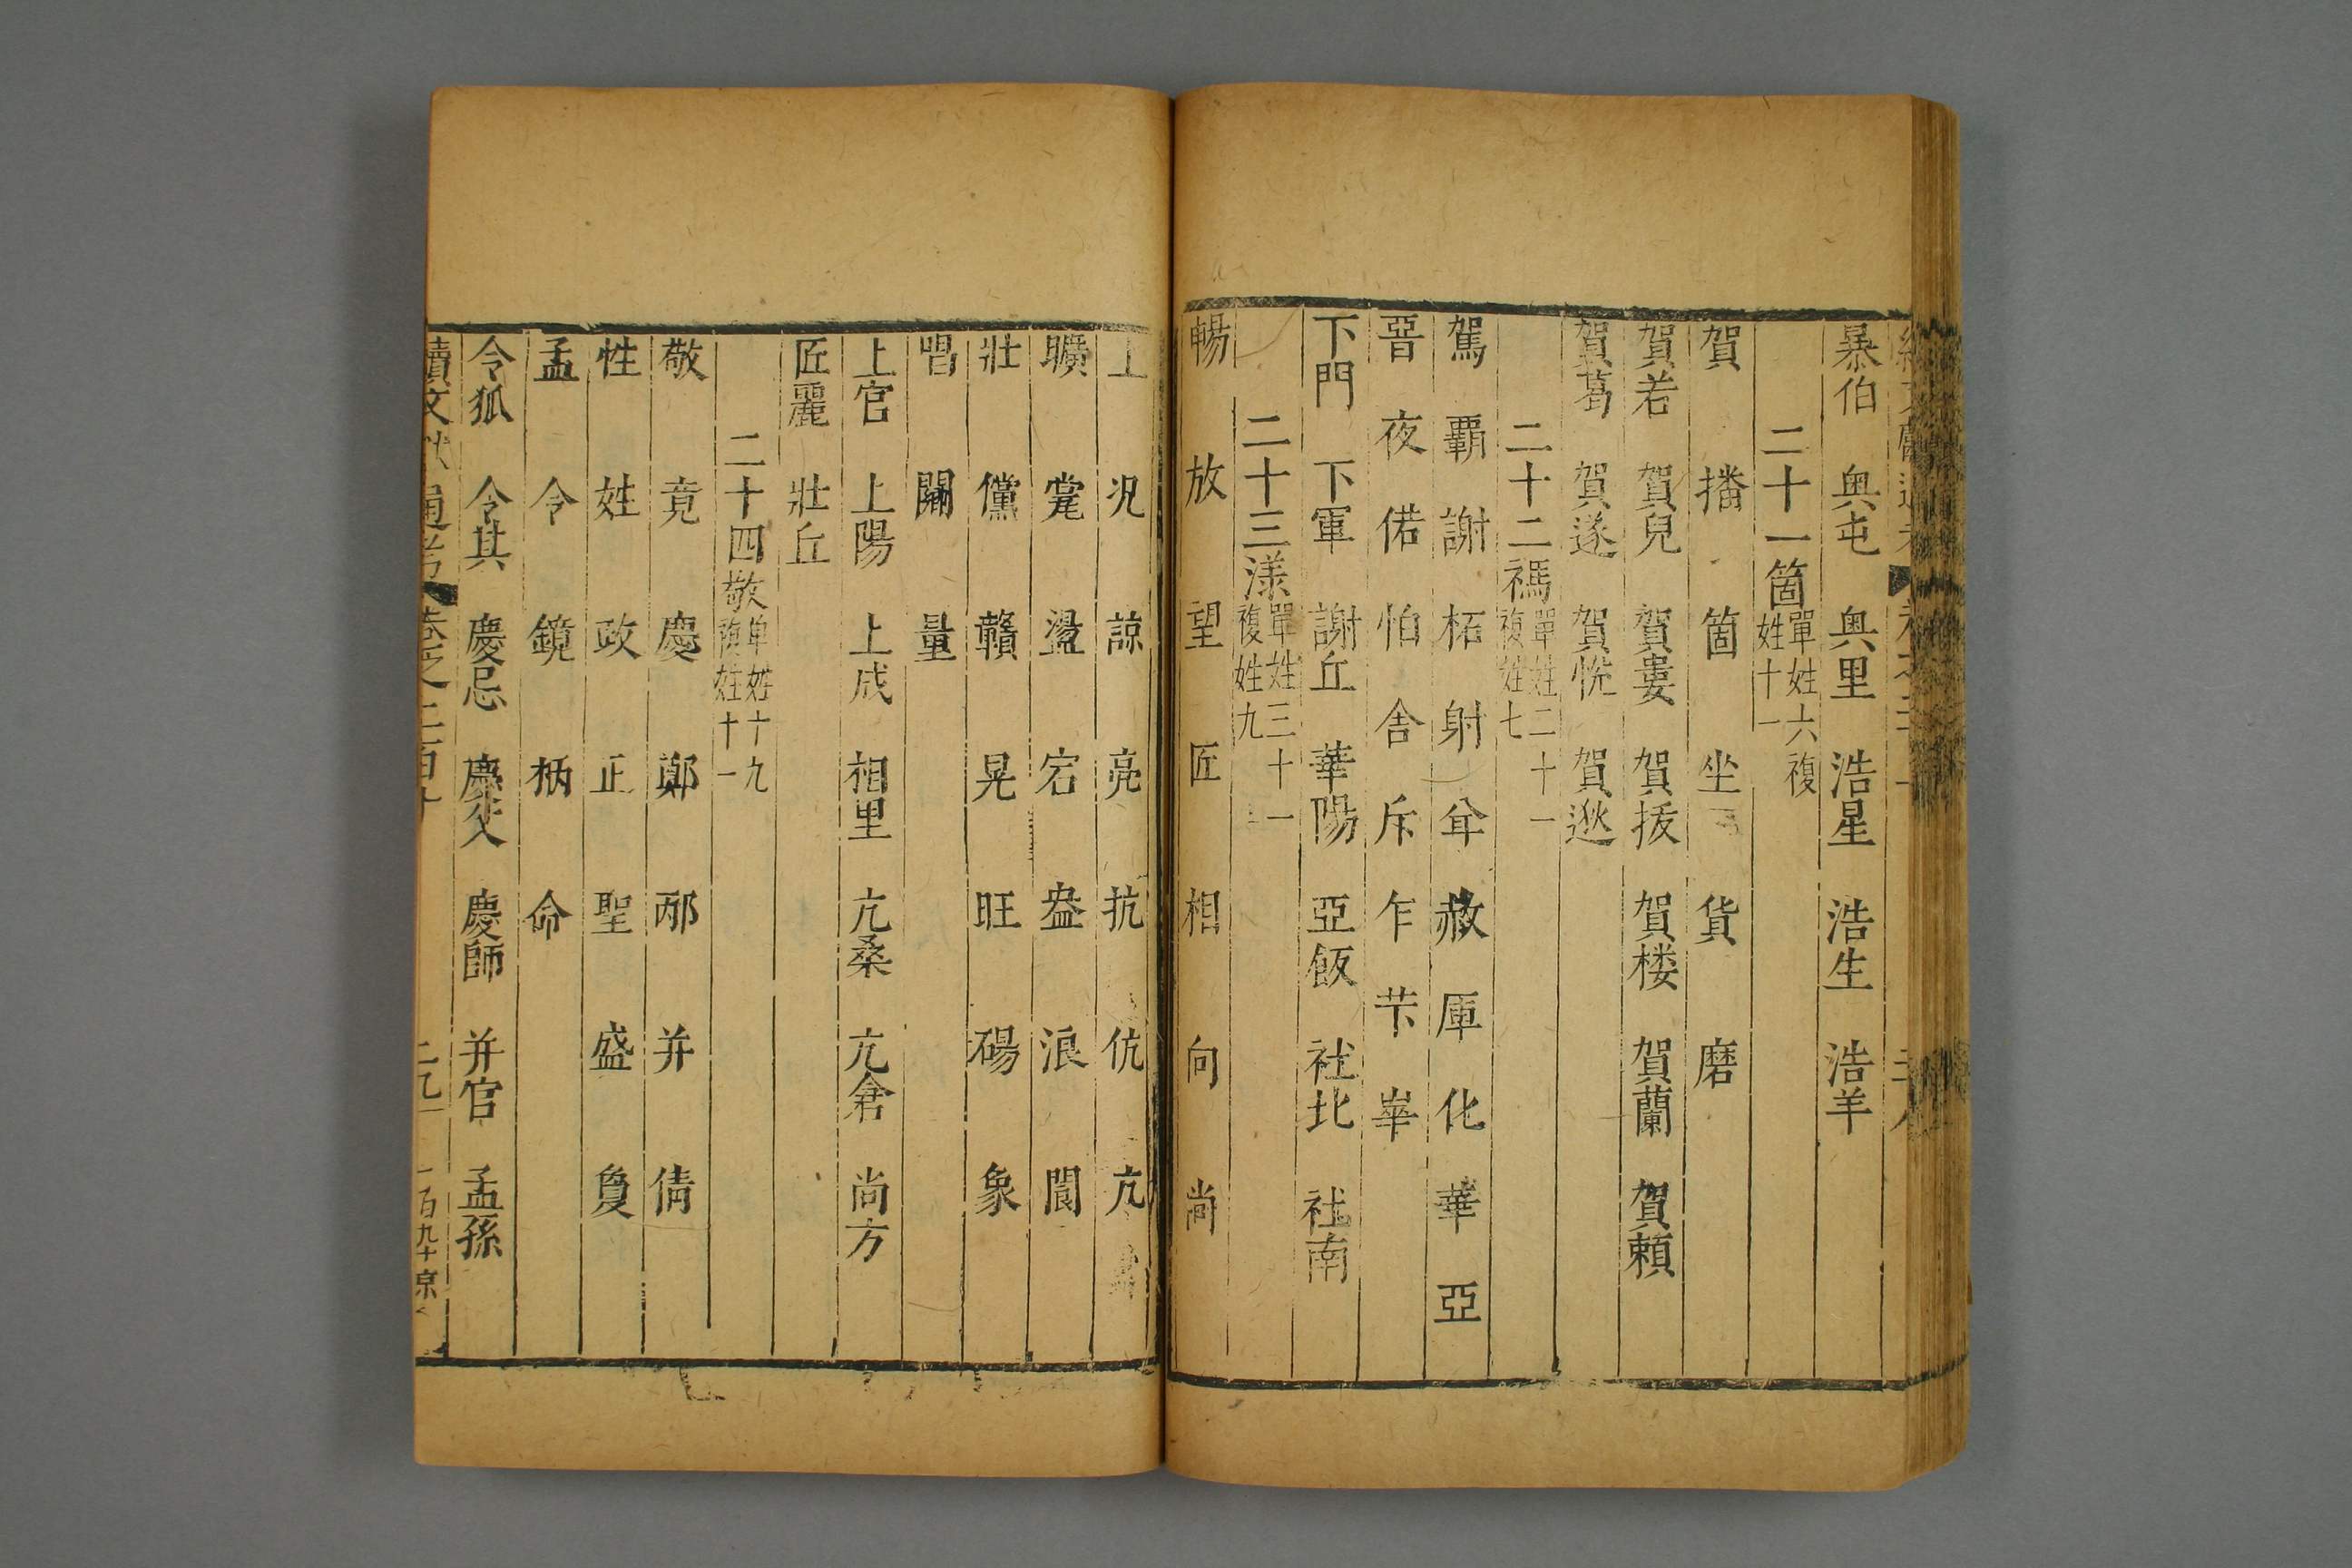 暴伯 奥屯 奥里 浩星 浩生 浩羊
二十一箇單姓六複姓十一
賀 播 箇 坐 貨 磨
賀若 賀兒 賀婁 賀拔 賀楼 賀蘭 賀頼
賀葛 賀遂 賀恍 賀逖
二十二禡單姓二十一複姓七
駕 覇 謝 柘 射 弇 赦 厙 化 華 亞
晉 夜 偌 怕 舍 斥 乍 芐 崋
下門 下軍 謝丘 華陽 亞飯 社北 社南
二十三漾單姓三十一複姓九
暢 放 望 匠 相 向 尚
上 况 諒 亮 抗 伉 亢
曠 瓽 盪 宕 盎 浪 閬
壯 儻 贛 晃 旺 碭 象
唱 闢 量
上官 上陽 上成 相里 亢桑 亢倉 尚方
匠麗 壯丘
二十四敬單姓十九複姓十一
敬 竟 慶 鄭 邴 并 倩
性 姓 政 正 聖 盛 敻
孟 令 鏡 柄 命
令狐 令其 慶忌 慶父 慶師 并官 孟孫
續文獻通考 卷之二百十 二九 一百九十 京